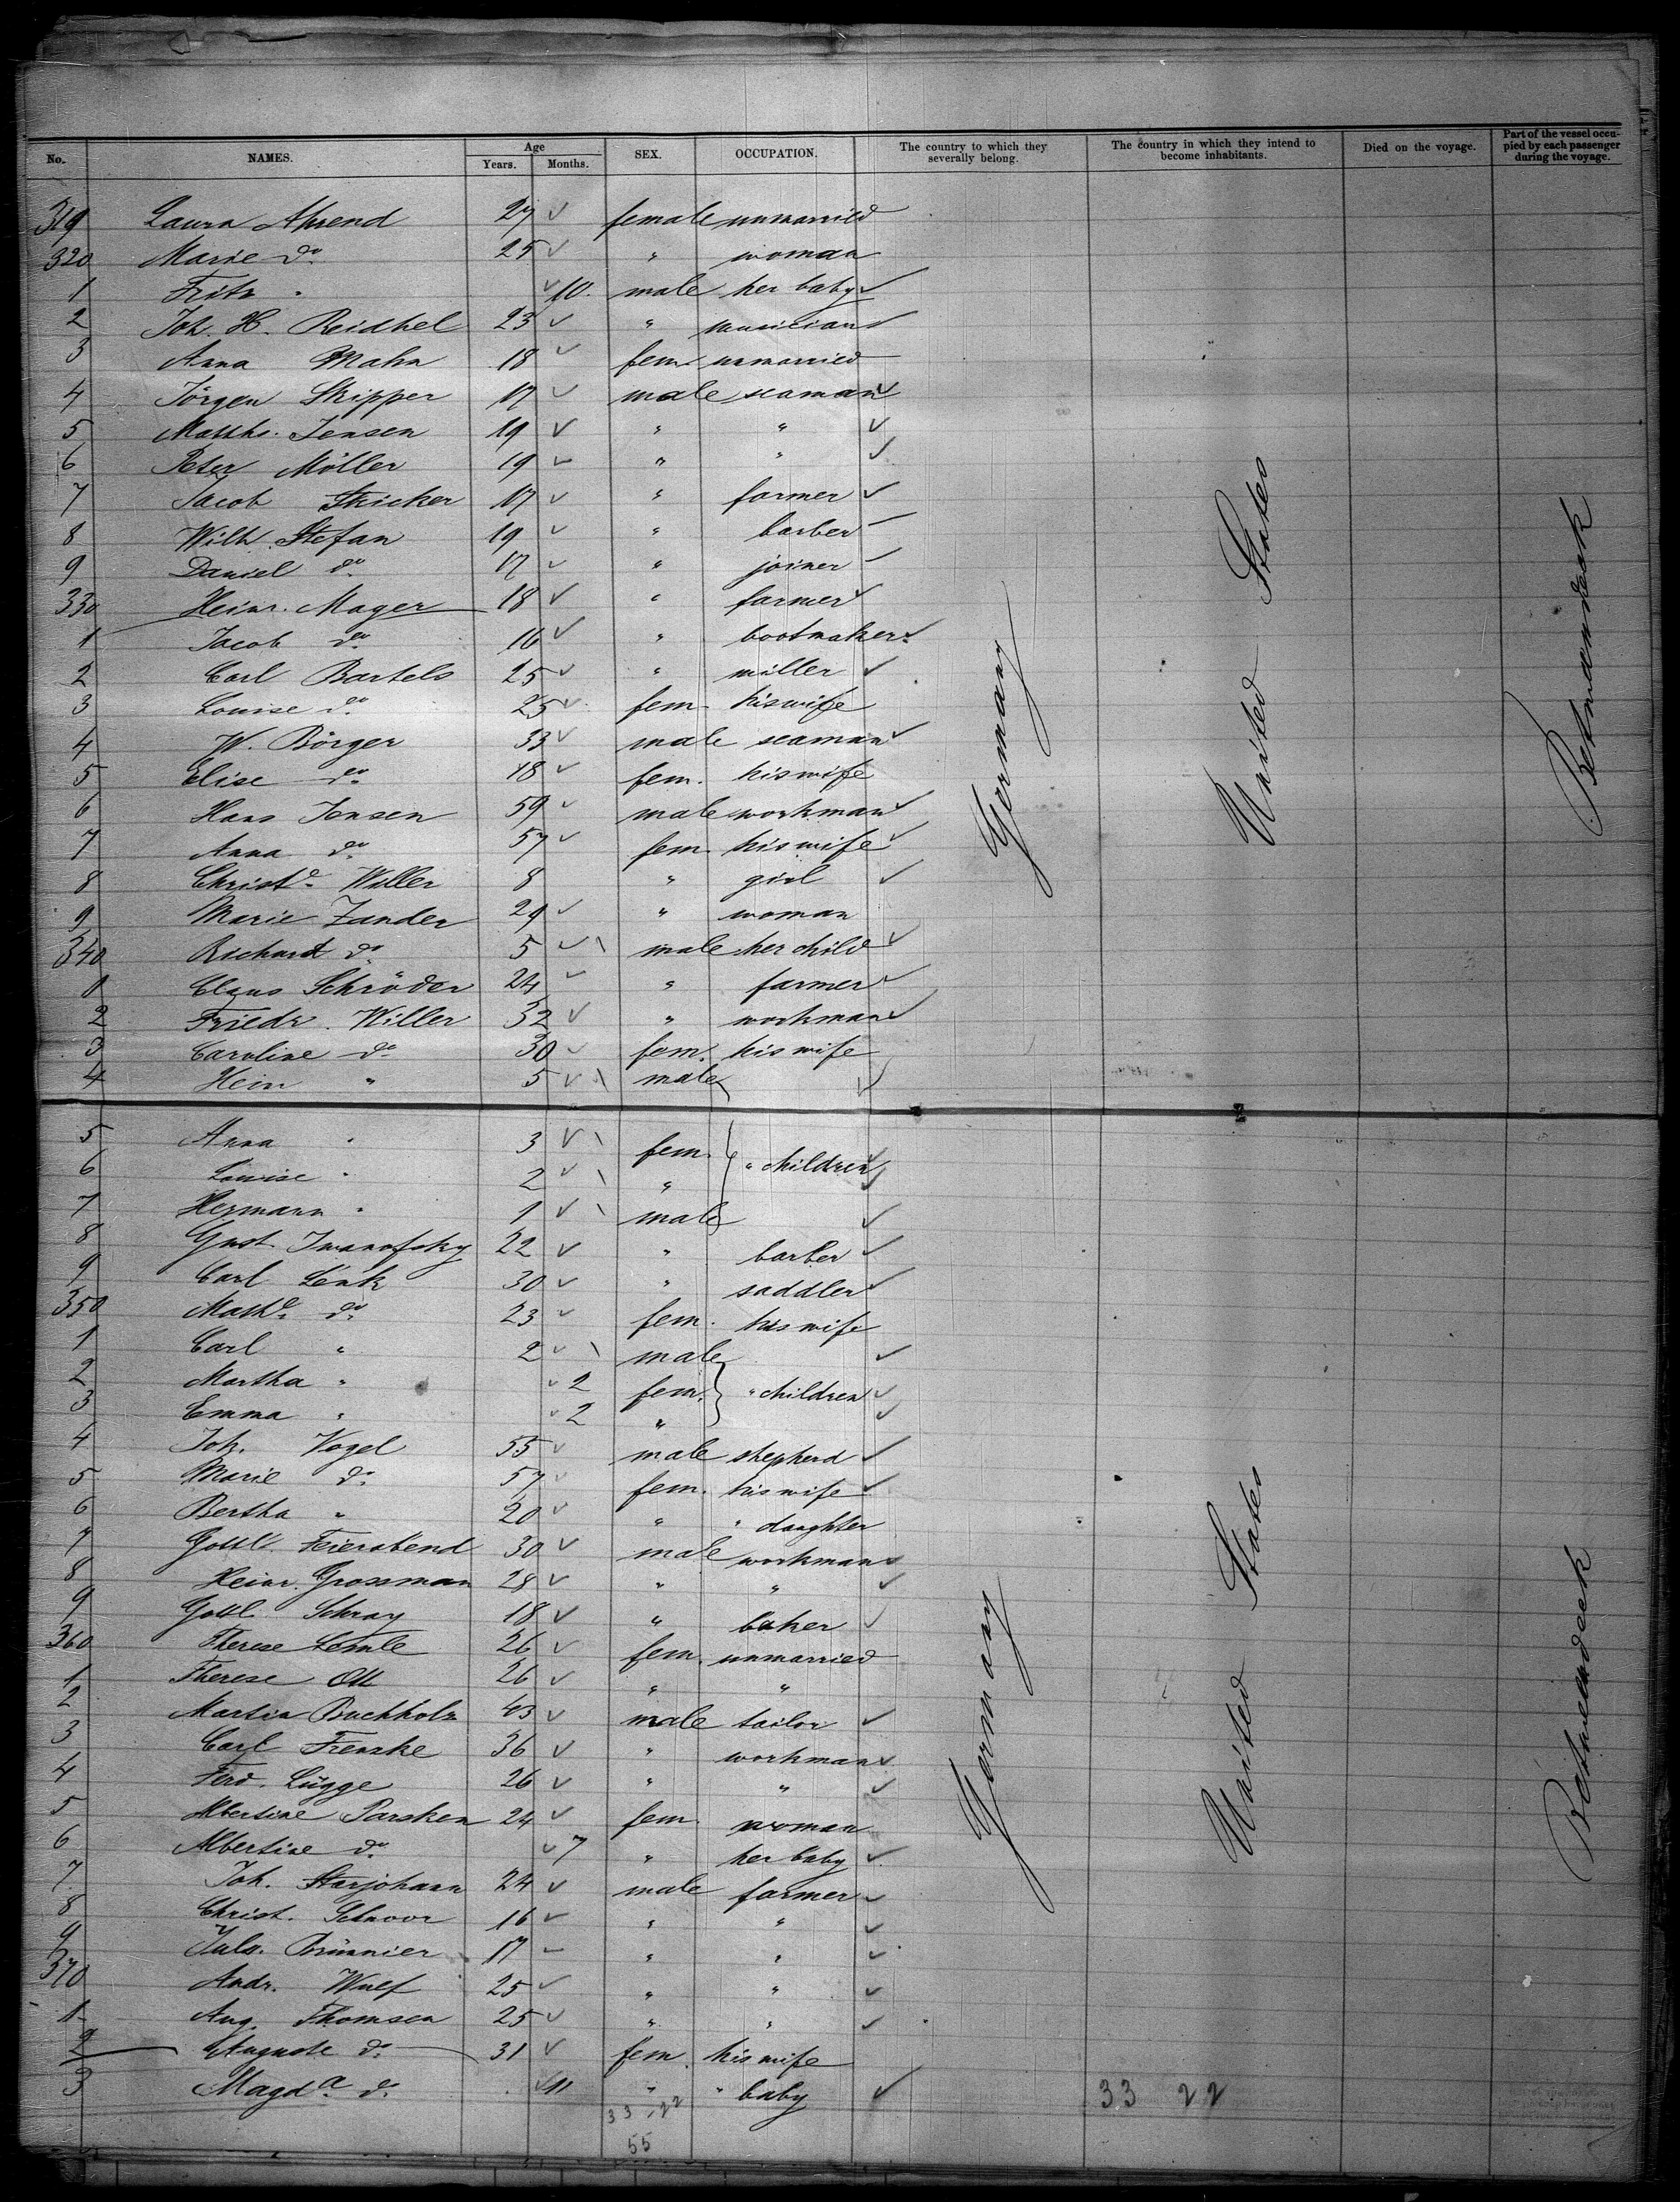 No. NAMES. Age Years. Months. SEX. OCCUPATION. The country to which they severally belong. The country in which they intend to become inhabitants. Died on the voyage. Part of the vessel occupied by each passenger during the voyage.
319 Laura Ahrend 27 female unmarried
320 Marie do 25 " woman
1 Fritz " 10 male her baby
2 Joh. H. Reidhel 23 " musician
3 Anna Mahn 18 fem. unmarried
4 Jörgen Skipper 17 male seaman
5 Matths. Jensen 19 " "
6 Peter Möller 19 " "
7 Jacob Stricker 17 " farmer
8 Wilh. Stefan 19 " barber
9 Daniel do 17 " joiner
330 Heinr. Mager 18 " farmer
1 Jacob do 16 " bootmaker
2 Carl Bartels 25 " miller
3 Louise do 25 fem. his wife
4 W. Börger 33 male seaman
5 Elise do 18 fem. his wife
6 Hans Jensen 59 male workman
7 Anna do 57 fem. his wife
8 Christe Willer 8 " girl
9 Marie Zander 29 " woman
340 Richard do 5 male her child
1 Claus Schröder 24 " farmer
2 Friedr. Willer 32 " workman
3 Caroline do 30 fem. his wife
4 Hein " 5 male
Germany United States Betweendeck
5 Anna " 3 fem. " children
6 Louise " 2 "
7 Hermann " 1 male
8 Gust. Iwanofsky 22 " barber
9 Carl Lenk 30 " saddler
350 Mathe do 23 fem. his wife
1 Carl " 2 male
2 Martha " 2 fem. " children
3 Emma " 2 "
4 Joh. Vogel 55 male shepherd
5 Marie do 57 fem. his wife
6 Bertha " 20 " " daughter
7 Gottl. Feierabend 30 male workman
8 Heinr. Grossman 28 " "
9 Gottl. Schray 18 " baker
360 Therese Lemle 26 fem. unmarried
1 Therese Ott 26 " "
2 Martin Buchholz 43 male tailor
3 Carl Frenzke 36 " workman
4 Ferd. Lügge 26 " "
5 Albertine Parsken 24 fem. woman
6 Albertine do 7 " her baby
7 Joh. Starjohann 24 male farmer
8 Christ. Schnoor 16 " "
9 Juls. Brünnier 17 " "
370 Andr. Wulf 25 " "
1 Aug. Thomsen 25 " "
2 Auguste do 31 fem. his wife
3 Magda do 11 " " baby
Germany United States Betweendeck
33 22 33 22
55